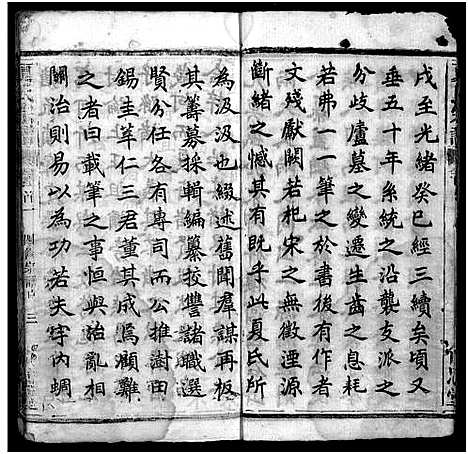 戌至光緒癸巳經三續矣頃又
垂五十年系統之沿襲支派之
分歧廬墓之變遷生齒之息耗
若弗一一筆之於書後有作者
文殘獻闕若杞宋之無徵湮源
斷緒之憾其有既乎此夏氏所
為汲汲也綴述舊聞羣謀再板
其籌募採輯編纂校讐諸職選
賢分任各有專司而公推澍田
錫圭萃仁三君董其成焉顧難
之者曰載筆之事恒與治亂相
關治則易以為功若夫宇內蜩